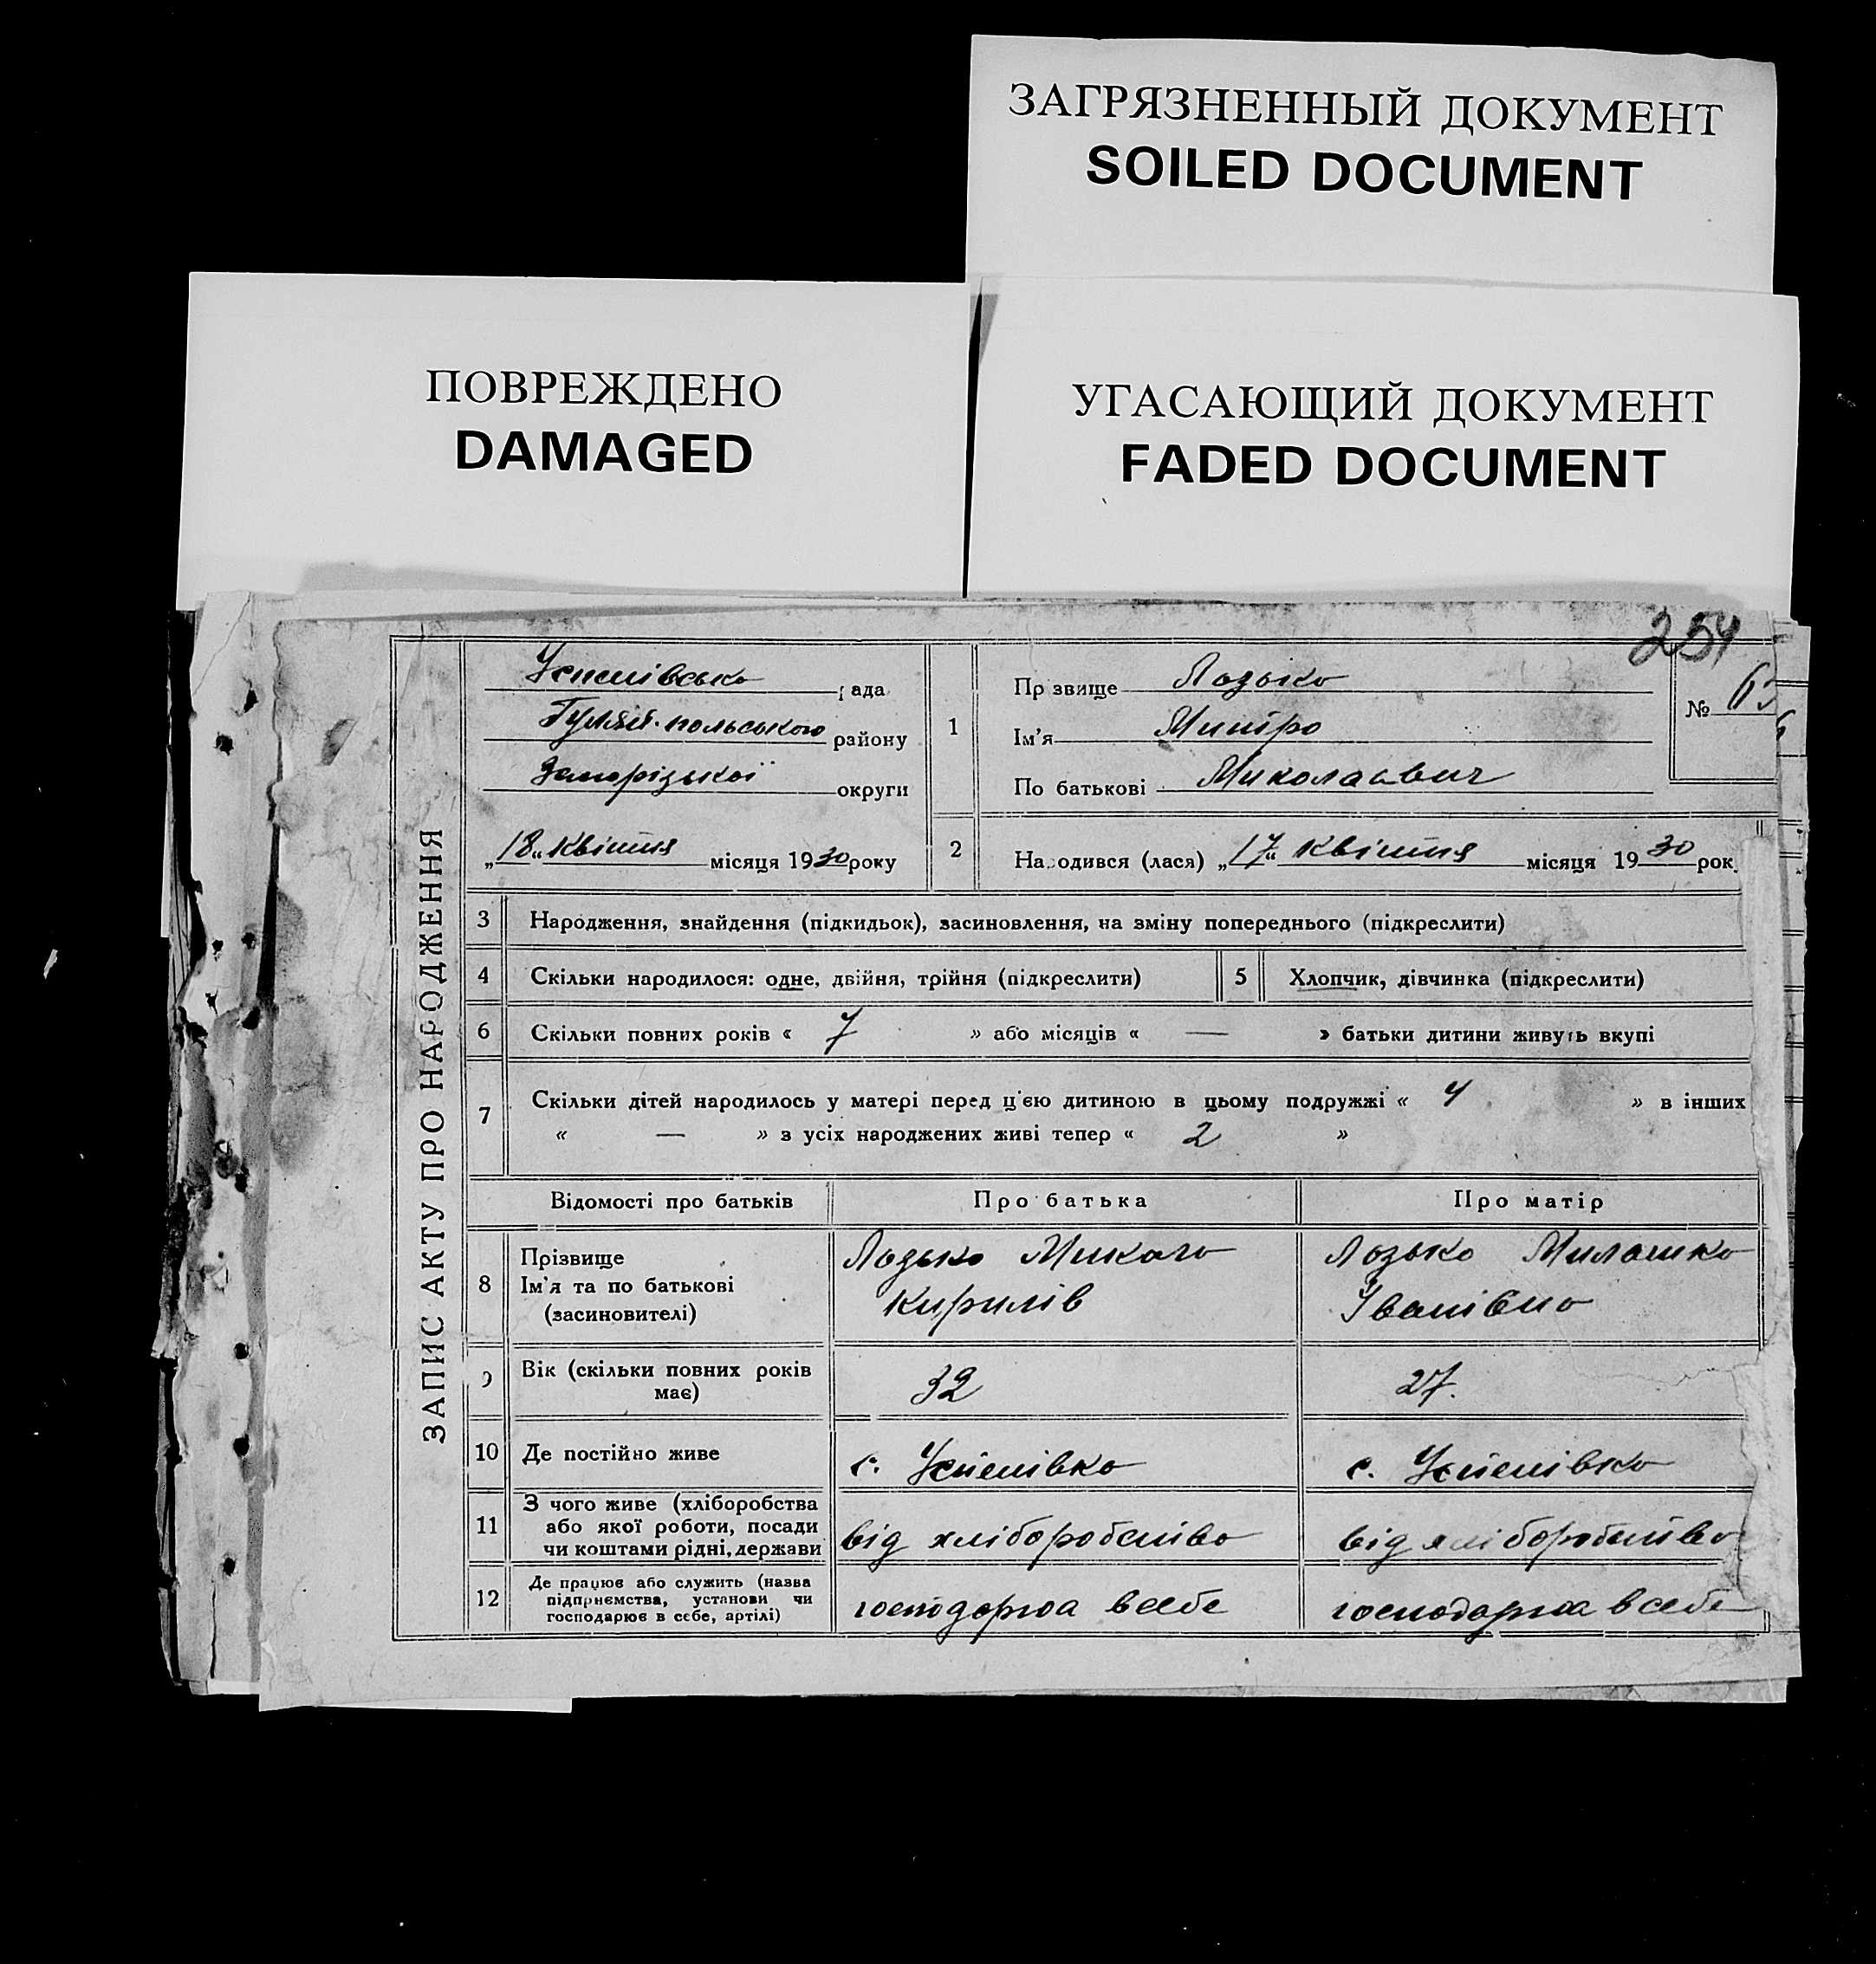 ЗАГРЯЗНЕННЫЙ ДОКУМЕНТ
SOILED DOCUMENT
ПОВРЕЖДЕНО
DAMAGED
УГАСАЮЩИЙ ДОКУМЕНТ
FADED DOCUMENT
254
ЗАПИС АКТУ ПРО НАРОДЖЕННЯ
Успенівсько рада
Гуляй-польського району
Запорізької округи
„18“ квітня місяця 1930 року
1
Прізвище Лозько
Ім'я
По батькові Миколаєвич
№ 63
2
Народився (лася) „17“ квітня місяця 1930 рок
3 Народження, знайдення (підкидьок), засиновлення, на зміну попереднього (підкреслити)
4 Скільки народилося: одне, двійня, трійня (підкреслити)
5 Хлопчик, дівчинка (підкреслити)
6 Скільки повних років « 7 » або місяців « — » батьки дитини живуть вкупі
7 Скільки дітей народилось у матері перед ц'єю дитиною в цьому подружжі « 4 » в інших
« — » з усіх народжених живі тепер « 2 »
Відомості про батьків Про батька Про матір
8 Прізвище
Ім'я та по батькові
(засиновителі)
Лозько Микола
Кирилів
Лозько Милашко
Іванівно
9 Вік (скільки повних років
має)
32 27.
10 Де постійно живе с. Успенівко с. Успенівко
11 З чого живе (хліборобства
або якої роботи, посади
чи коштами рідні, держави
від хліборобство від хліборобство
12 Де працює або служить (назва
підприємства, установи чи
господарює в себе, артілі)
господарюа в себе господарюа в себе